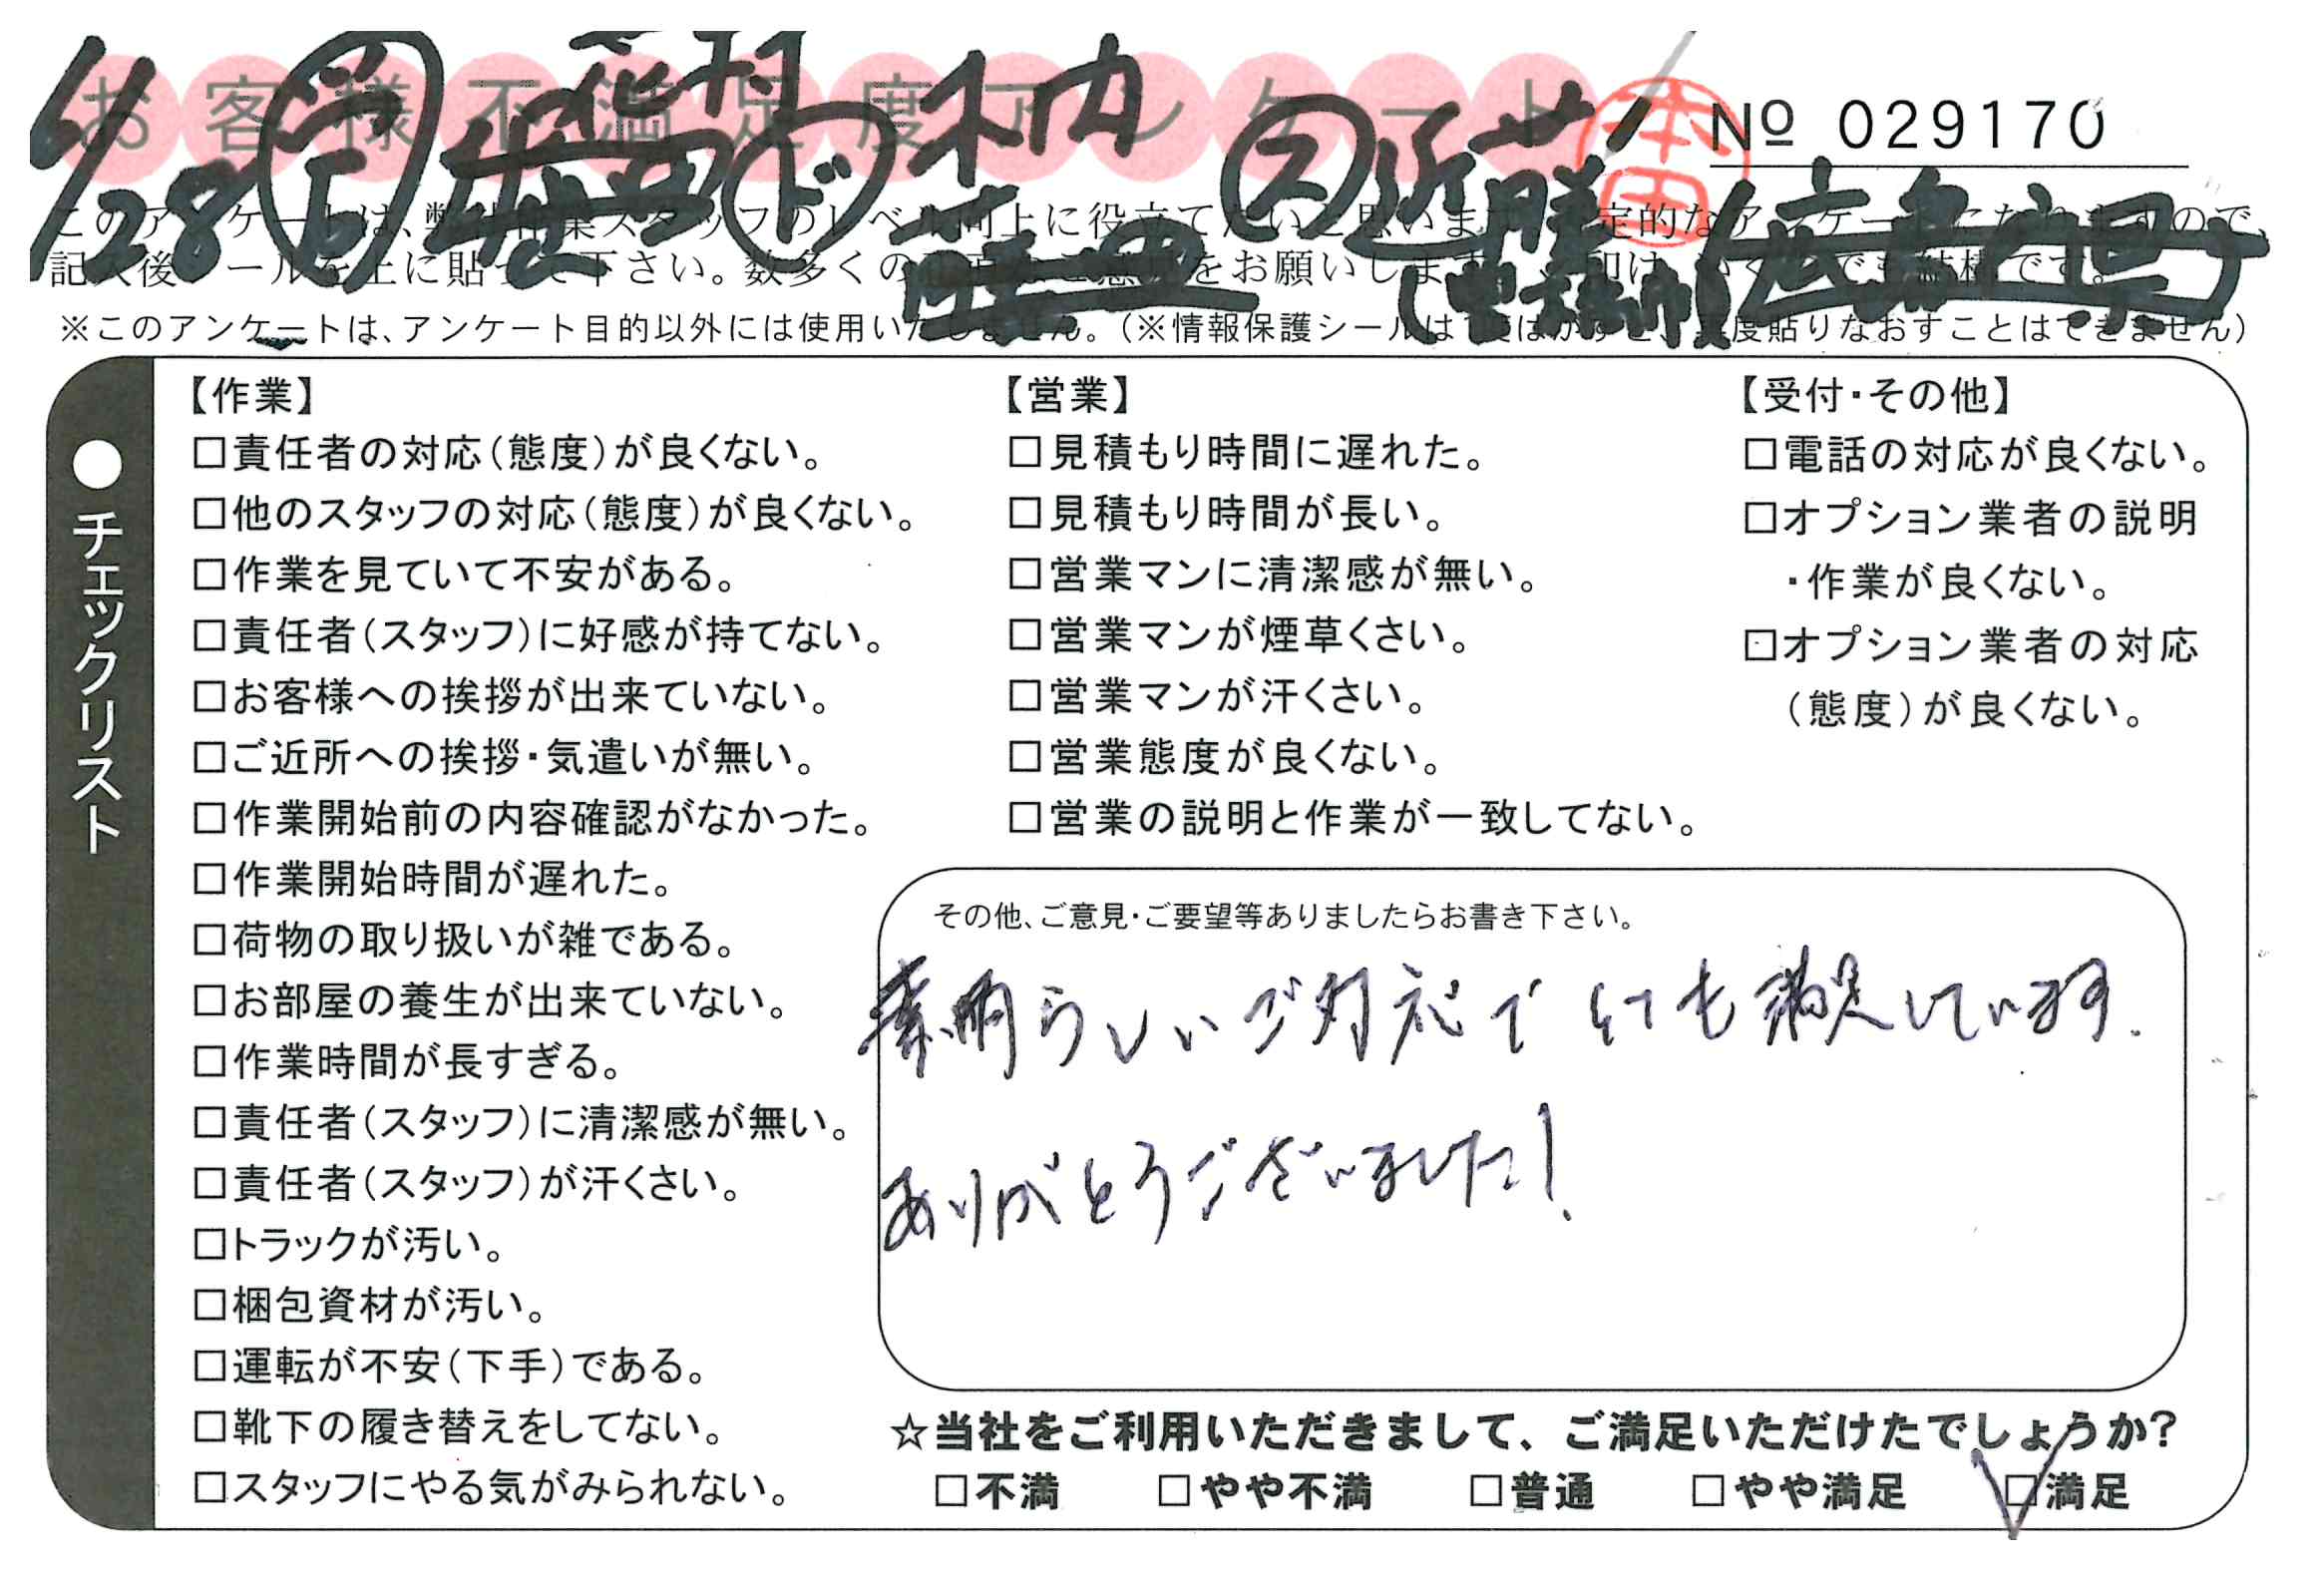 お客様不満足度アンケート
Nº 029170
6/28 近藤
本田
記入後シールを上に貼って下さい。数多くの をお願いします
※このアンケートは、アンケート目的以外には使用いたしません。（※情報保護シールは 度貼りなおすことはできません）
●チェックリスト
【作業】
□責任者の対応（態度）が良くない。
□他のスタッフの対応（態度）が良くない。
□作業を見ていて不安がある。
□責任者（スタッフ）に好感が持てない。
□お客様への挨拶が出来ていない。
□ご近所への挨拶・気遣いが無い。
□作業開始前の内容確認がなかった。
□作業開始時間が遅れた。
□荷物の取り扱いが雑である。
□お部屋の養生が出来ていない。
□作業時間が長すぎる。
□責任者（スタッフ）に清潔感が無い。
□責任者（スタッフ）が汗くさい。
□トラックが汚い。
□梱包資材が汚い。
□運転が不安（下手）である。
□靴下の履き替えをしてない。
□スタッフにやる気がみられない。
【営業】
□見積もり時間に遅れた。
□見積もり時間が長い。
□営業マンに清潔感が無い。
□営業マンが煙草くさい。
□営業マンが汗くさい。
□営業態度が良くない。
□営業の説明と作業が一致してない。
【受付・その他】
□電話の対応が良くない。
□オプション業者の説明
・作業が良くない。
□オプション業者の対応
（態度）が良くない。
その他、ご意見・ご要望等ありましたらお書き下さい。
素晴らしいご対応でとても満足しています.
ありがとうございました!
☆当社をご利用いただきまして、ご満足いただけたでしょうか？
□不満 □やや不満 □普通 □やや満足 ☑満足